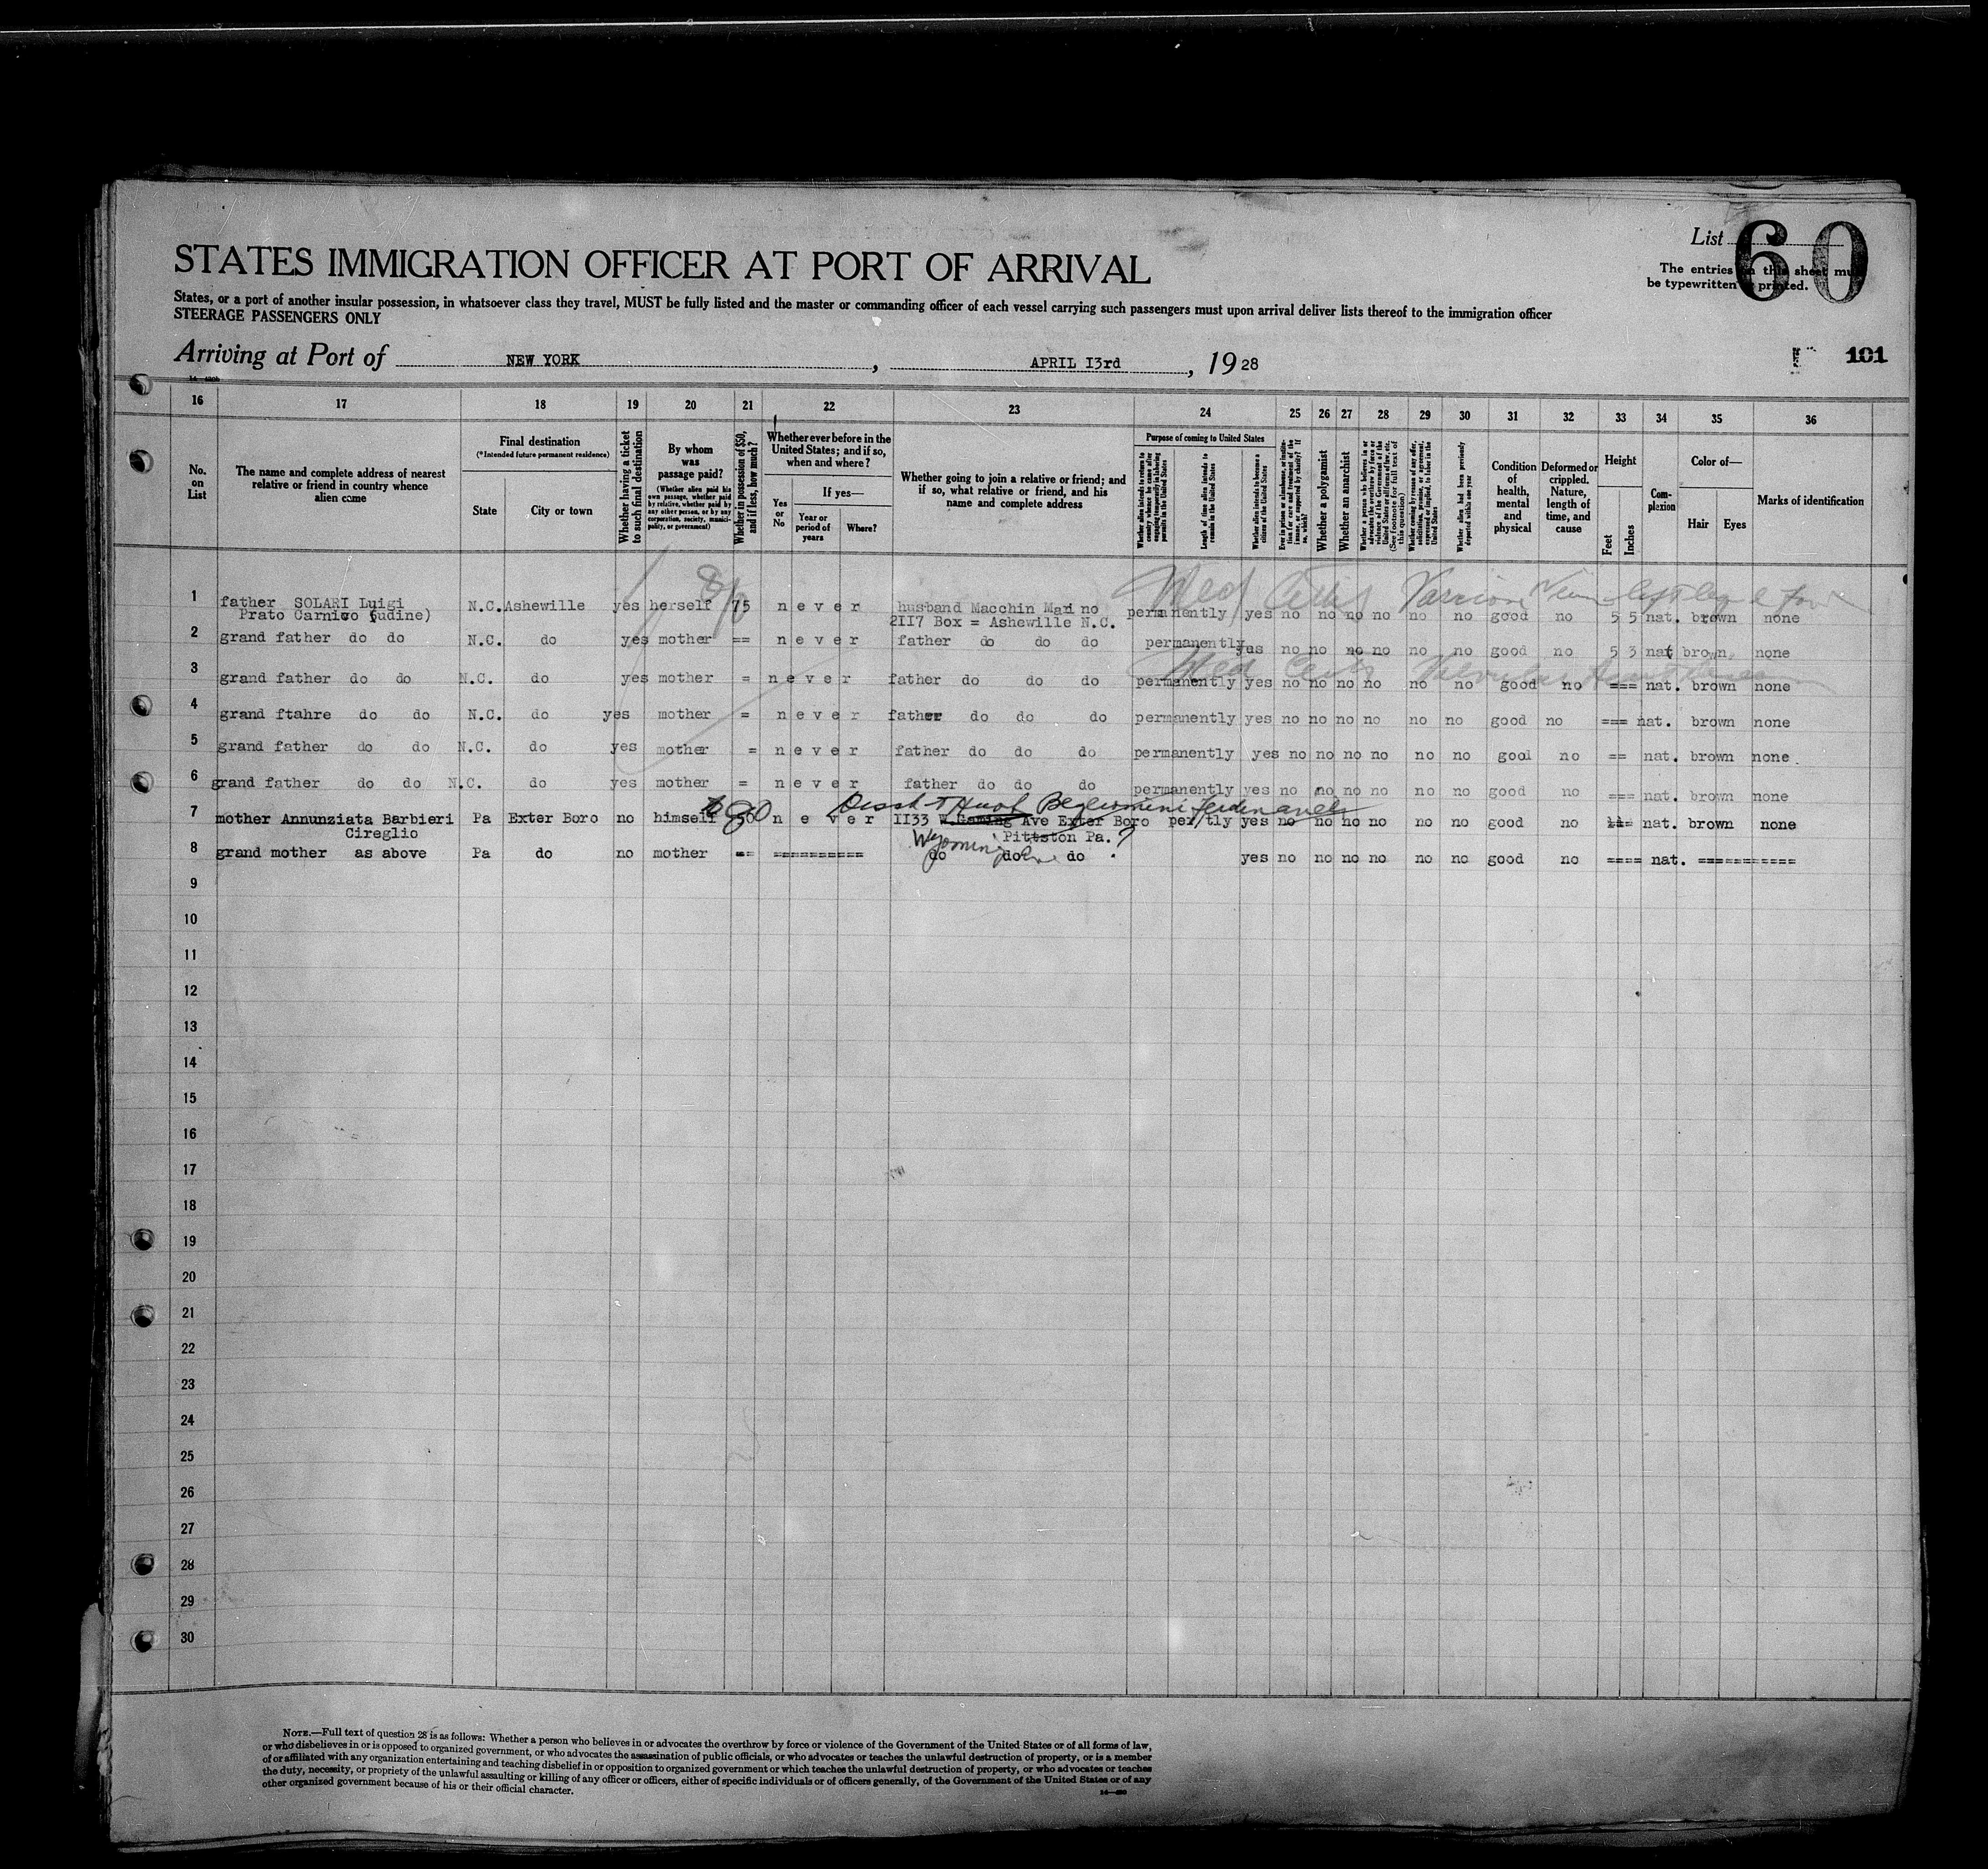 List 60
STATES IMMIGRATION OFFICER AT PORT OF ARRIVAL
The entries on this sheet must
be typewritten or printed.
States, or a port of another insular possession, in whatsoever class they travel, MUST be fully listed and the master or commanding officer of each vessel carrying such passengers must upon arrival deliver lists thereof to the immigration officer
STEERAGE PASSENGERS ONLY
Arriving at Port of NEW YORK , APRIL I3rd , 1928
101
16 17 18 19 20 21 22 23 24 25 26 27 28 29 30 31 32 33 34 35 36
No. on List
The name and complete address of nearest relative or friend in country whence alien came
Final destination
(*Intended future permanent residence)
State
City or town
Whether having a ticket to such final destination
By whom was passage paid?
(Whether alien paid his own passage, whether paid by relative, whether paid by any other person, or by any corporation, society, municipality, or government)
Whether in possession of $50, and if less, how much?
Whether ever before in the United States; and if so, when and where?
Yes or No
If yes—
Year or period of years
Where?
Whether going to join a relative or friend; and if so, what relative or friend, and his name and complete address
Purpose of coming to United States
Whether alien intends to return to country whence he came after engaging temporarily in laboring pursuits in the United States
Length of time alien intends to remain in the United States
Whether alien intends to become a citizen of the United States
Ever in prison or almshouse, or institution for care and treatment of the insane, or supported by charity? If so, which?
Whether a polygamist
Whether an anarchist
Whether a person who believes in or advocates the overthrow by force or violence of the Government of the United States or all forms of law, etc. (See footnote for full text of this question)
Whether coming by reason of any offer, solicitation, promise, or agreement, expressed or implied, to labor in the United States
Whether alien had been previously deported within one year
Condition of health, mental and physical
Deformed or crippled. Nature, length of time, and cause
Height
Feet
Inches
Complexion
Color of—
Hair
Eyes
Marks of identification
Med Certif Varicose Veins left leg
1 father SOLARI Luigi N.C. Ashewille yes herself 75 never husband Macchin Mari no permanently yes no no no no no no good no 5 5 nat. brown none
Prato Carnico (udine) 2II7 Box = Ashewille N.C.
2 grand father do do N.C. do yes mother == never father do do do permanently yes no no no no no no good no 5 3 nat brown none
Med Certif Valvular Heart Disease
3 grand father do do N.C. do yes mother = never father do do do permanently yes no no no no no no good no === nat. brown none
4 grand ftahre do do N.C. do yes mother = never father do do do permanently yes no no no no no no good no === nat. brown none
5 grand father do do N.C. do yes mother = never father do do do permanently yes no no no no no no good no == nat. brown none
6 grand father do do N.C. do yes mother = never father do do do permanently yes no no no no no no good no === nat. brown none
7 mother Annunziata Barbieri Pa Exter Boro no himself 50 never II33 W.Gaming Ave Exter Boro per/tly yes no no no no no no good no nat. brown none
Cireglio Wyoming Pittston Pa. ?
8 grand mother as above Pa do no mother == ========== do do do yes no no no no no no good no ==== nat. ===========
9
10
11
12
13
14
15
16
17
18
19
20
21
22
23
24
25
26
27
28
29
30
NOTE.—Full text of question 28 is as follows: Whether a person who believes in or advocates the overthrow by force or violence of the Government of the United States or of all forms of law,
or who disbelieves in or is opposed to organized government, or who advocates the assassination of public officials, or who advocates or teaches the unlawful destruction of property, or is a member
of or affiliated with any organization entertaining and teaching disbelief in or opposition to organized government or which teaches the unlawful destruction of property, or who advocates or teaches
the duty, necessity, or propriety of the unlawful assaulting or killing of any officer or officers, either of specific individuals or of officers generally, of the Government of the United States or of any
other organized government because of his or their official character.